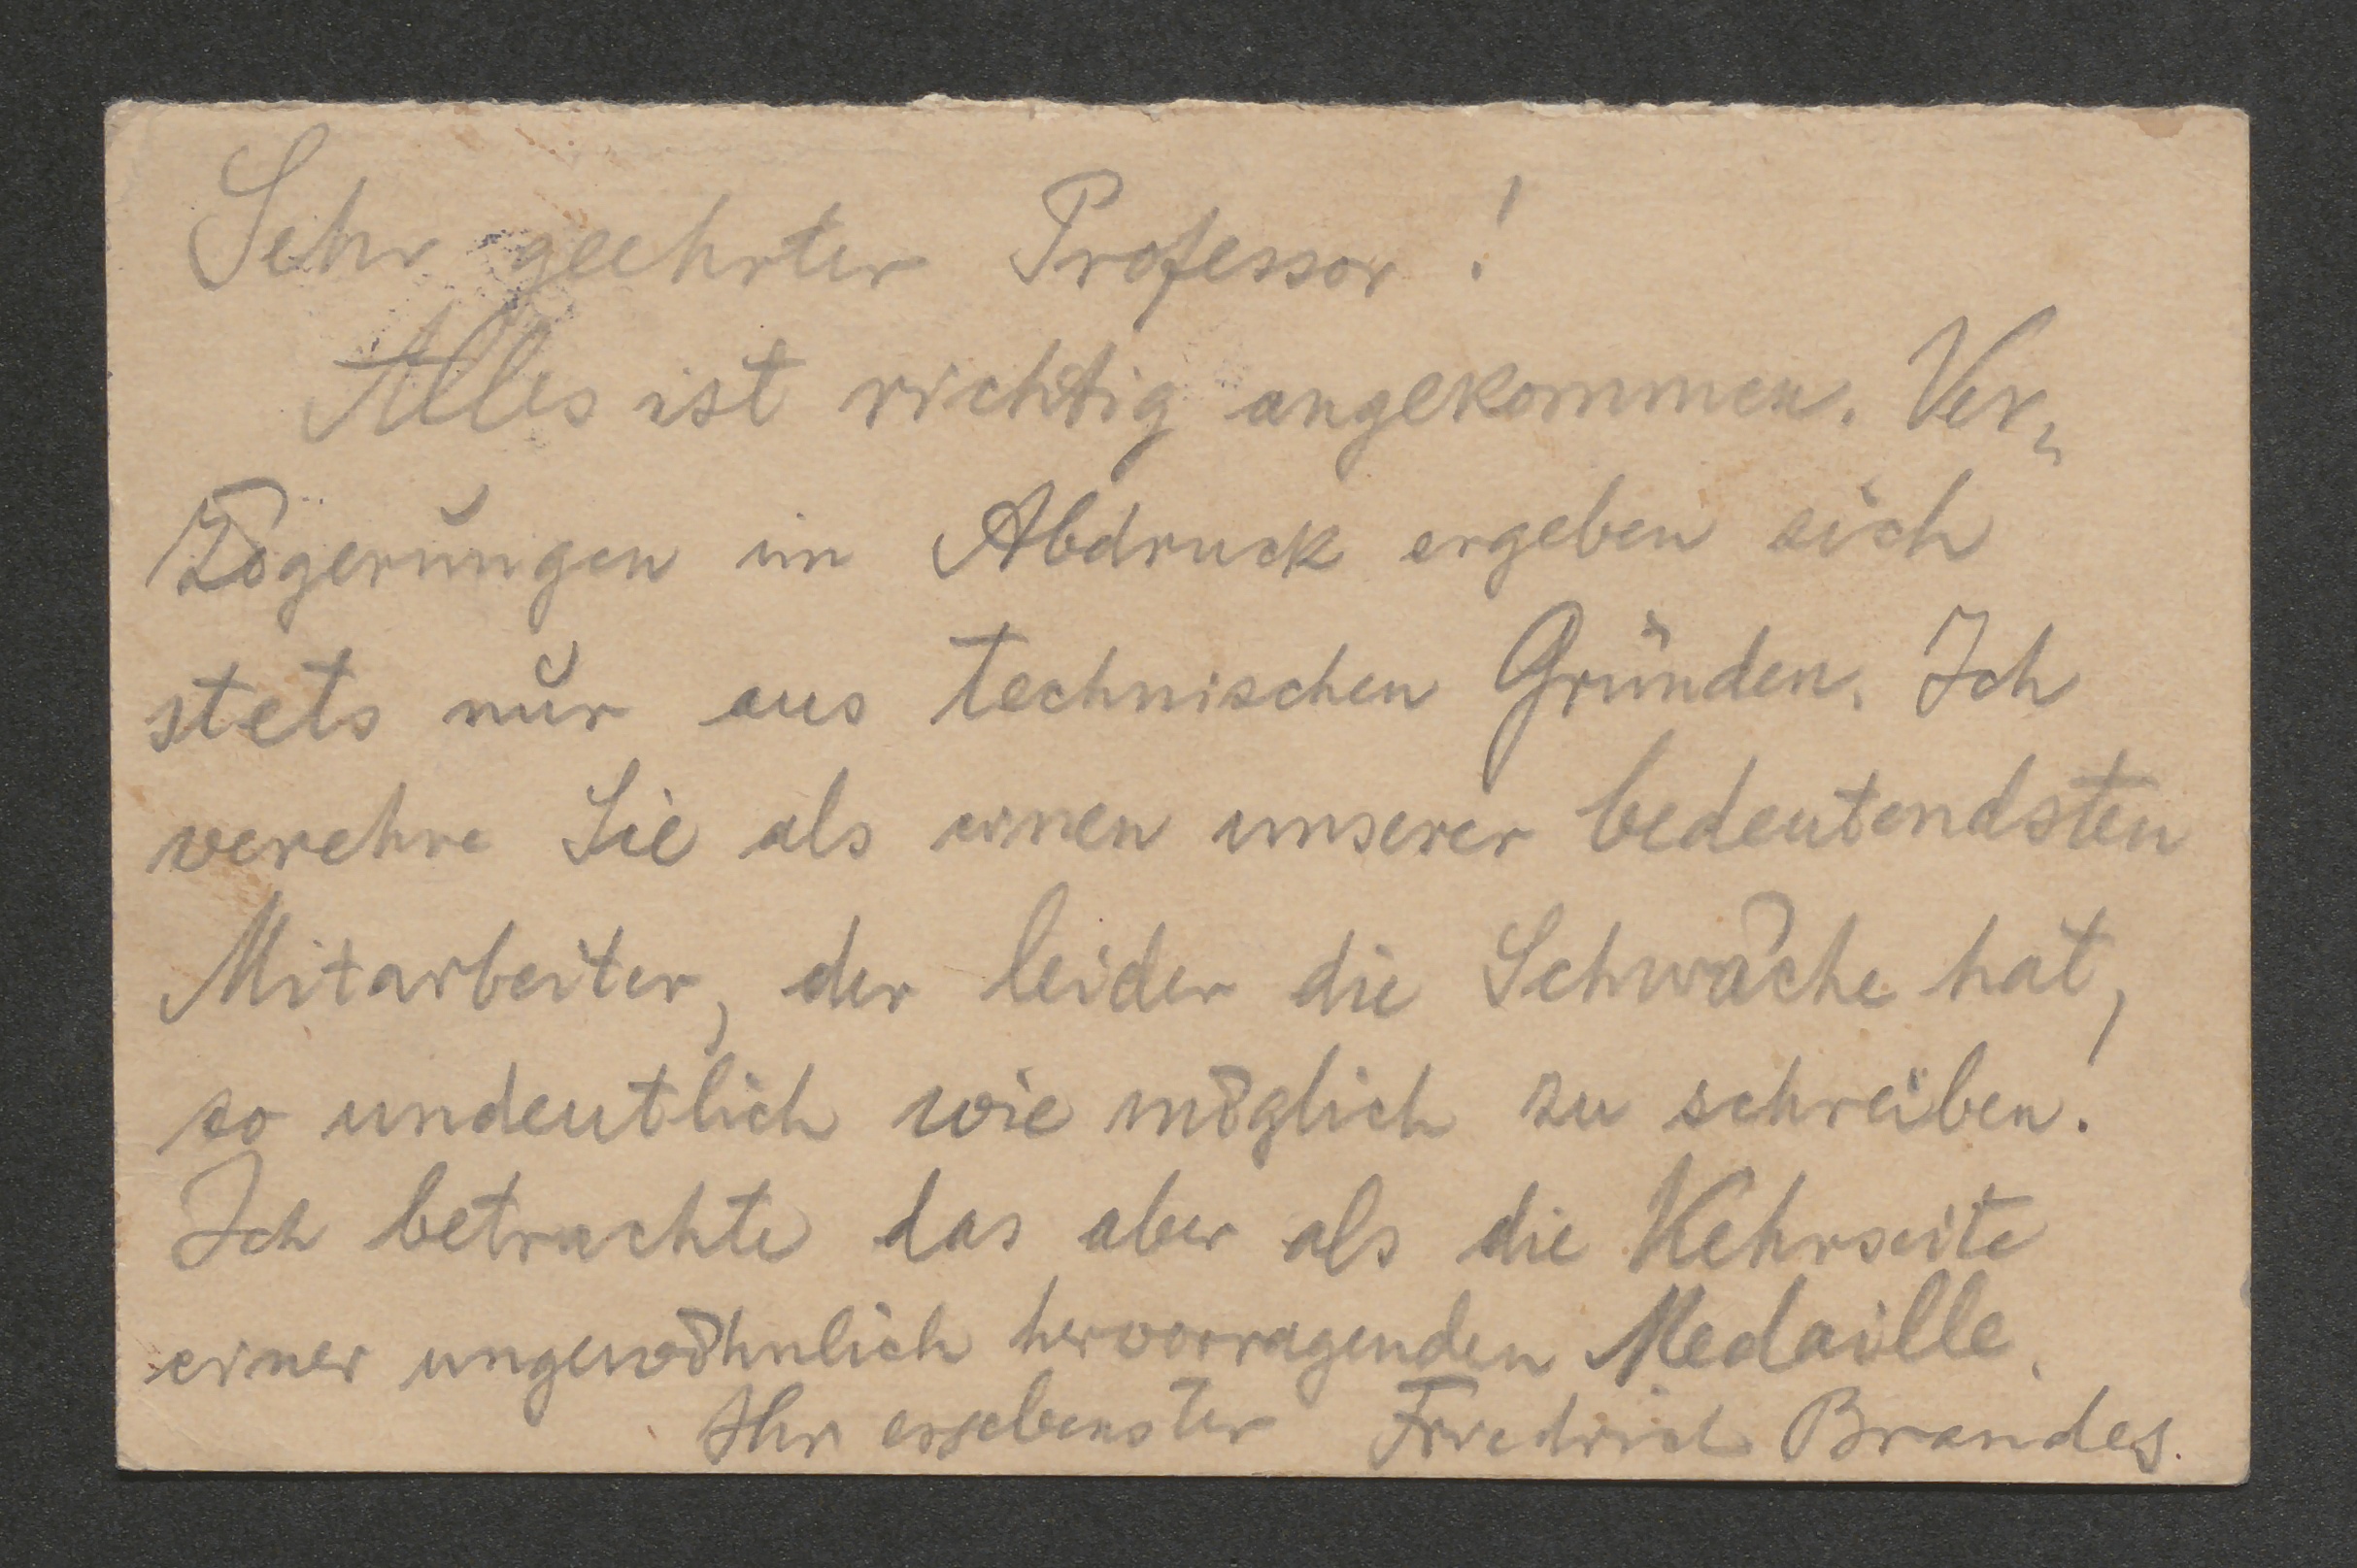 Sehr geehrter Professor!
Alles ist richtig angekommen. Ver-
zögerungen im Abdruck ergeben sich
stets nur aus technischen Gründen. Ich
verehre Sie als einen unserer bedeutendsten
Mitarbeiter, der leider die Schwäche hat,
so undeutlich wie möglich zu schreiben.
Ich betrachte das aber als die Kehrseite
einer ungewöhnlich hervorragenden Medaille.
Ihr ergebenster Friedrich Brandes.